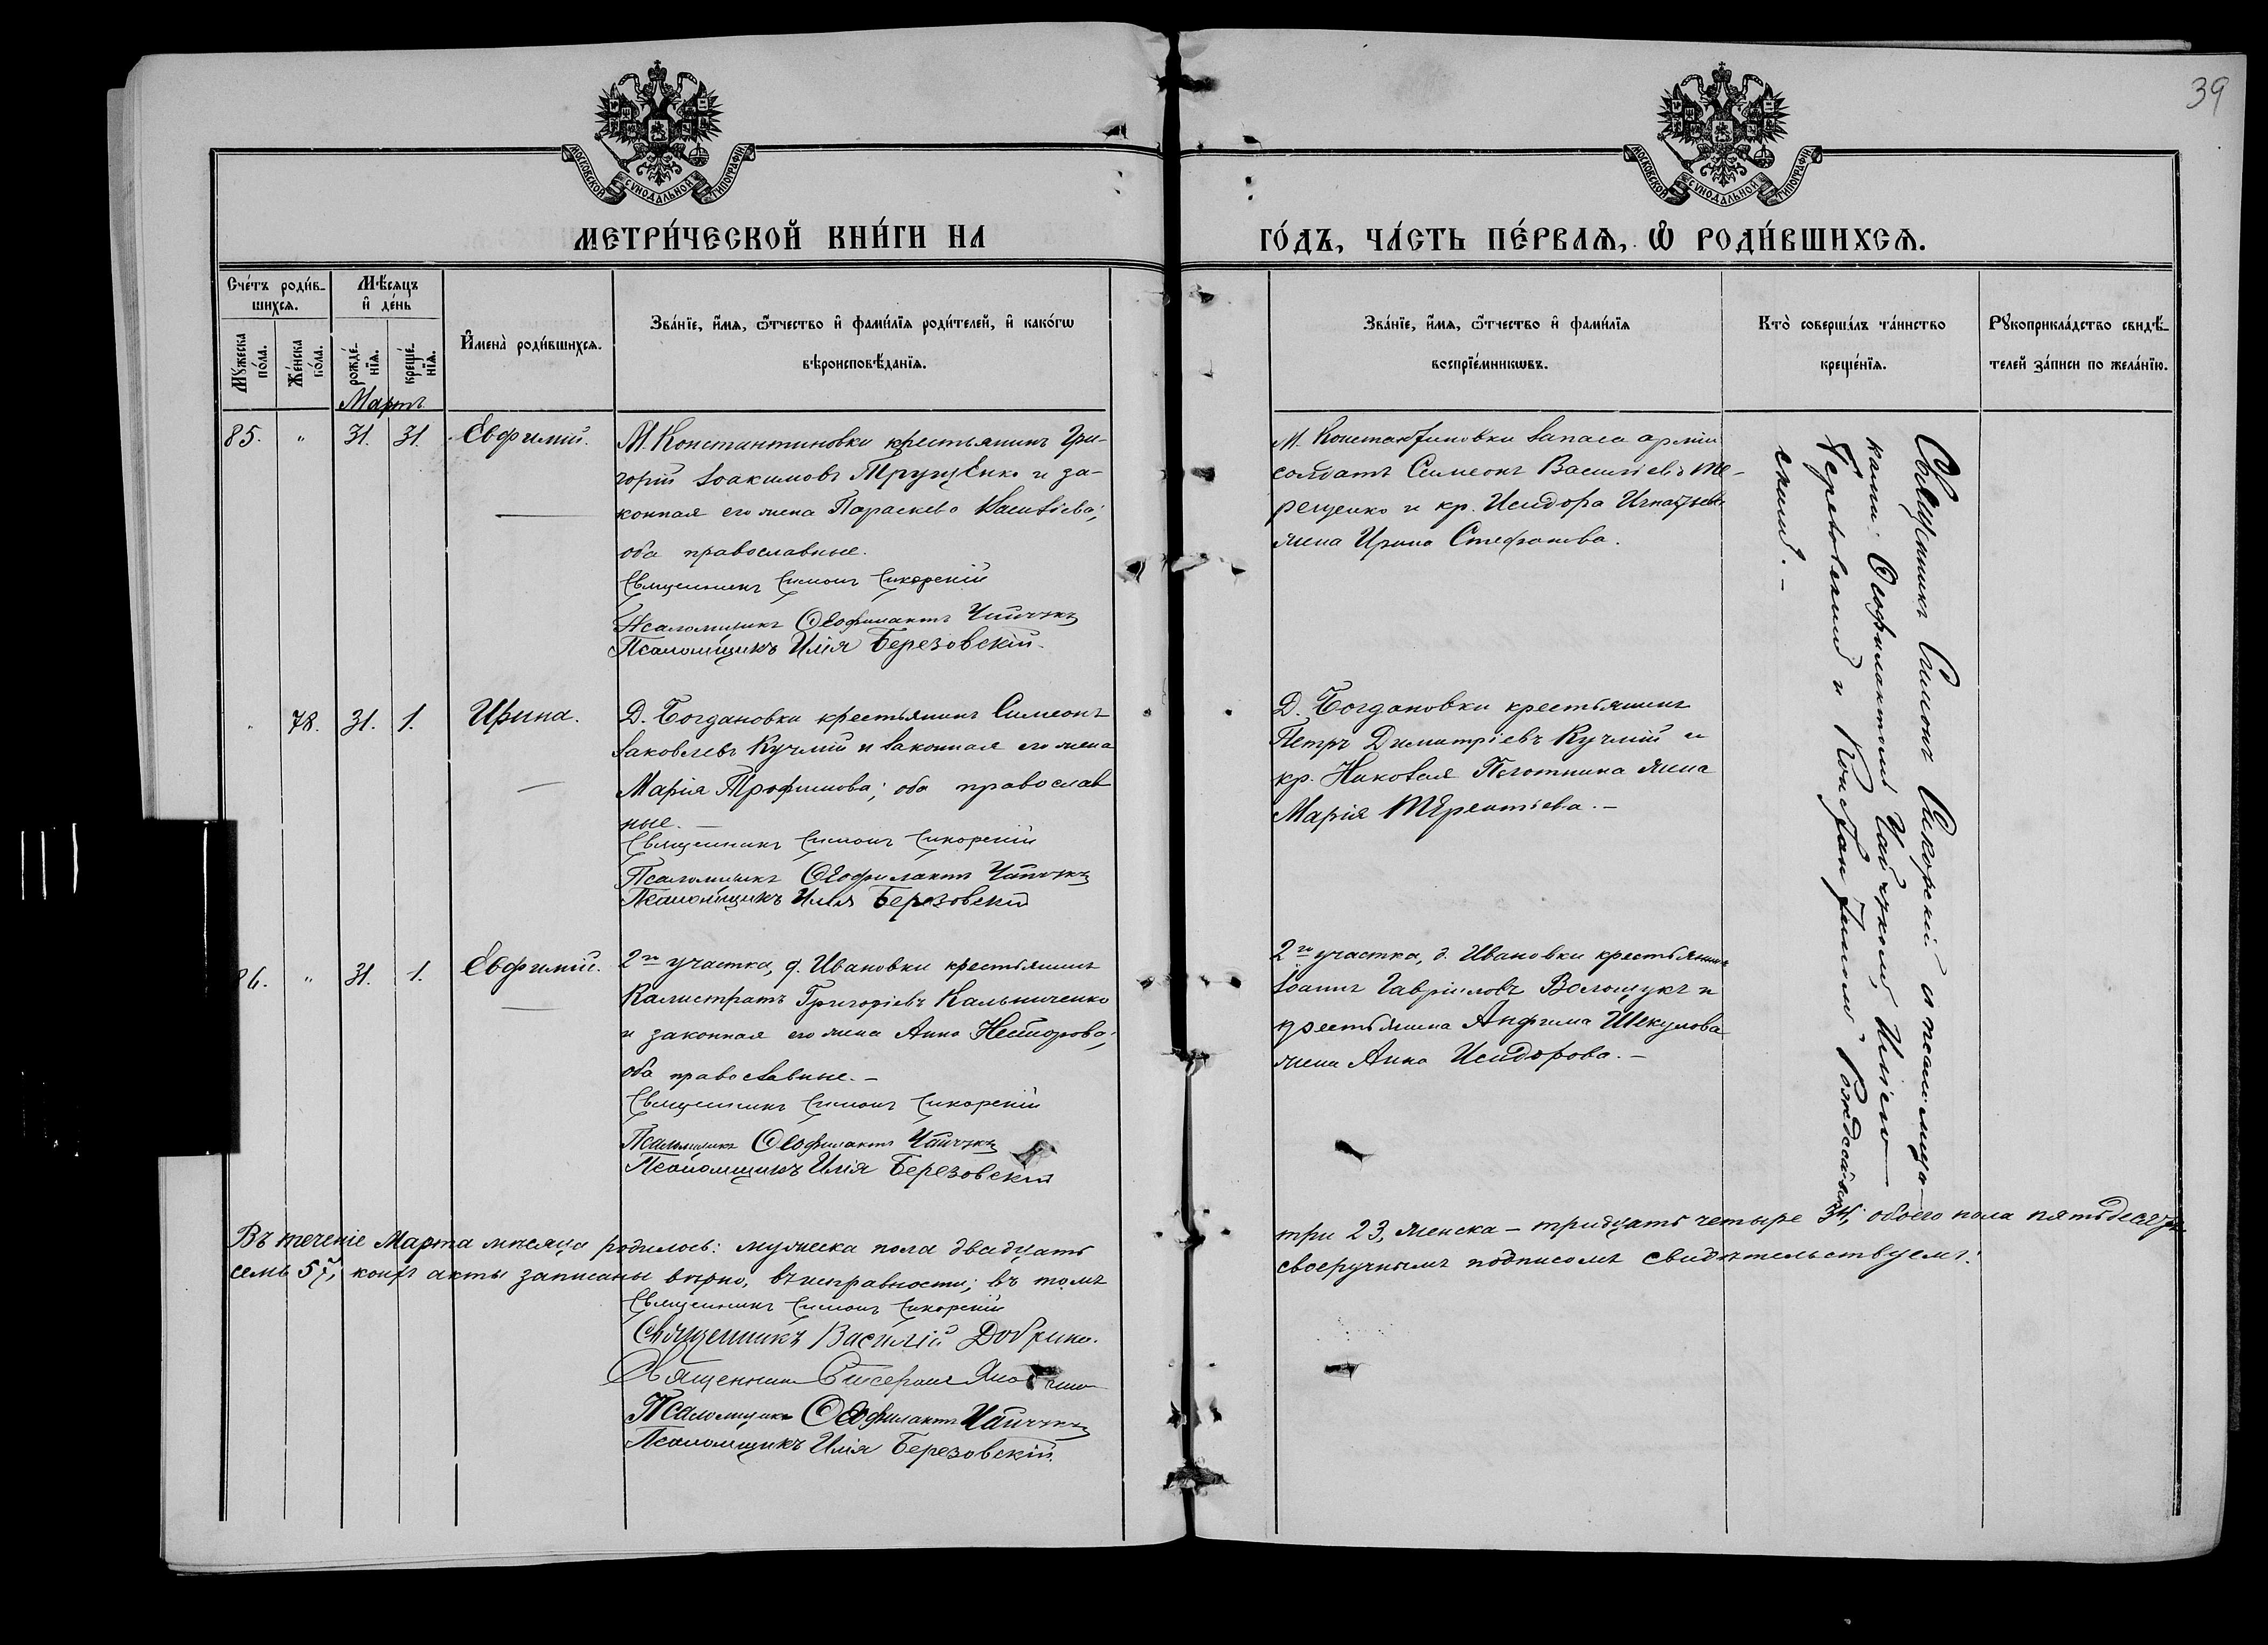 39
МОСКОВСКОЙ СѴНОДАЛЬНОЙ ТИПОГРАФІИ
МОСКОВСКОЙ СѴНОДАЛЬНОЙ ТИПОГРАФІИ
МЕТРИ́ЧЕСКОЙ КНИ́ГИ НА
ГО́ДЪ, ЧА́СТЬ ПЕ́РВАѦ, Ѽ РОДИ́ВШИХСѦ.
Сче́тъ роди́в-
шихсѧ.
Мѣ́сѧцъ
и҆ де́нь
Мꙋ́жеска
по́ла.
Же́нска
по́ла.
рожде́-
нїѧ.
креще́-
нїѧ.
И҆мена̀ роди́вшихсѧ.
Зва́нїе, и҆́мѧ, ѻ҆́тчество и҆ фами́лїѧ роди́телей, и҆ како́гѡ
вѣроисповѣ́данїѧ.
Зва́нїе, и҆́мѧ, ѻ҆́тчество и҆ фами́лїѧ
воспрїе́мникѡвъ.
Кто̀ соверша́лъ та́инство
креще́нїѧ.
Рꙋкоприкла́дство свидѣ́-
телей за́писи по жела́нїю.
Мартъ.
85. " 31. 31. Евфимій.
М. Константиновки крестьянинъ Гри-
горій Іоакимовъ Трущенко и за-
конная его жена Параскева Васильева;
оба православные.
Священникъ Симонъ Сикорскій
Псаломщикъ Ѳеофилактъ Чайчукъ
Псаломщикъ Илія Березовскій.
М. Константиновки запаса арміи
солдатъ Симеонъ Васильевъ Те-
рещенко и кр. Исидора Игнатьева
жена Ирина Стефанова.
Священникъ Симонъ Сикорскій с псаломщи-
ками: Ѳеофилактомъ Чайчукомъ, Иліею
Березовскимъ и Константиномъ Рождествен-
скимъ. -
78. 31. 1. Ирина.
Д. Богдановки крестьянинъ Симеонъ
Іаковлевъ Кучмій и законная его жена
Марія Трофимова; оба православ
ные. -
Священникъ Симонъ Сикорскій
Псаломщикъ Ѳеофилактъ Чайчукъ
Псаломщикъ Илія Березовскій
Д. Богдановки крестьянинъ
Петръ Димитріевъ Кучмій и
кр. Николая Плотника жена
Марія Терентьева. -
86. " 31. 1. Евфимій.
2го участка, д. Ивановки крестьянинъ
Калистратъ Григорьевъ Кальниченко
и законная его жена Анна Несторова,
оба православные. -
Священникъ Симонъ Сикорскій
Псаломщикъ Ѳеофилактъ Чайчукъ
Псаломщикъ Илія Березовскій
2го участка, д. Ивановки крестьянинъ
Іоаннъ Гавріиловъ Волощукъ и
крестьянина Анфима Шекулова
жена Анна Исидорова. -
Въ теченіе Марта мѣсяца родилось: мужеска пола двадцать
три 23, женска - тридцать четыре 34, обоего пола пятьдесятъ
семь 57, коихъ акты записаны вѣрно, въ исправности; въ томъ
своеручнымъ подписомъ свидѣтельствуемъ:
Священникъ Симонъ Сикорскій
Священникъ Василій Добрин
Священникъ
Псаломщикъ Ѳеофилактъ Чайчукъ
Псаломщикъ Илія Березовскій.